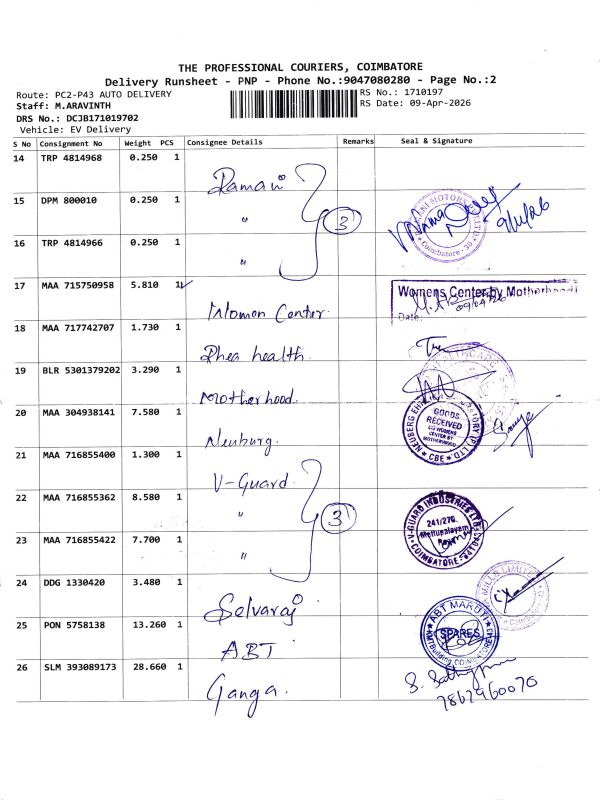 THE PROFESSIONAL COURIERS, COIMBATORE
Delivery Runsheet - PNP - Phone No.:9047080280 - Page No.:2
Route: PC2-P43 AUTO DELIVERY
Staff: M.ARAVINTH
DRS No.: DCJB171019702
Vehicle: EV Delivery
RS No.: 1710197
RS Date: 09-Apr-2026
S No Consignment No Weight PCS Consignee Details Remarks Seal & Signature
14 TRP 4814968 0.250 1 Ramani
15 DPM 800010 0.250 1 "
16 TRP 4814966 0.250 1 "
3
17 MAA 715750958 5.810 1 Women Center Womens Center by Motherhood
Date: 09/04/26
18 MAA 717742707 1.730 1 Rhea health.
19 BLR 5301379202 3.290 1 Motherhood.
20 MAA 304938141 7.580 1 Neuburg. GOODS RECEIVED
CBE
21 MAA 716855400 1.300 1 V-Guard.
22 MAA 716855362 8.580 1 " V-GUARD INDUSTRIES LTD
241/276,
Mettupalayam
Road
COIMBATORE
23 MAA 716855422 7.700 1
3
24 DDG 1330420 3.480 1 Selvaraj
25 PON 5758138 13.260 1 ABT ABT MARUTI
SPARES
26 SLM 393089173 28.660 1 Ganga.
7867960070